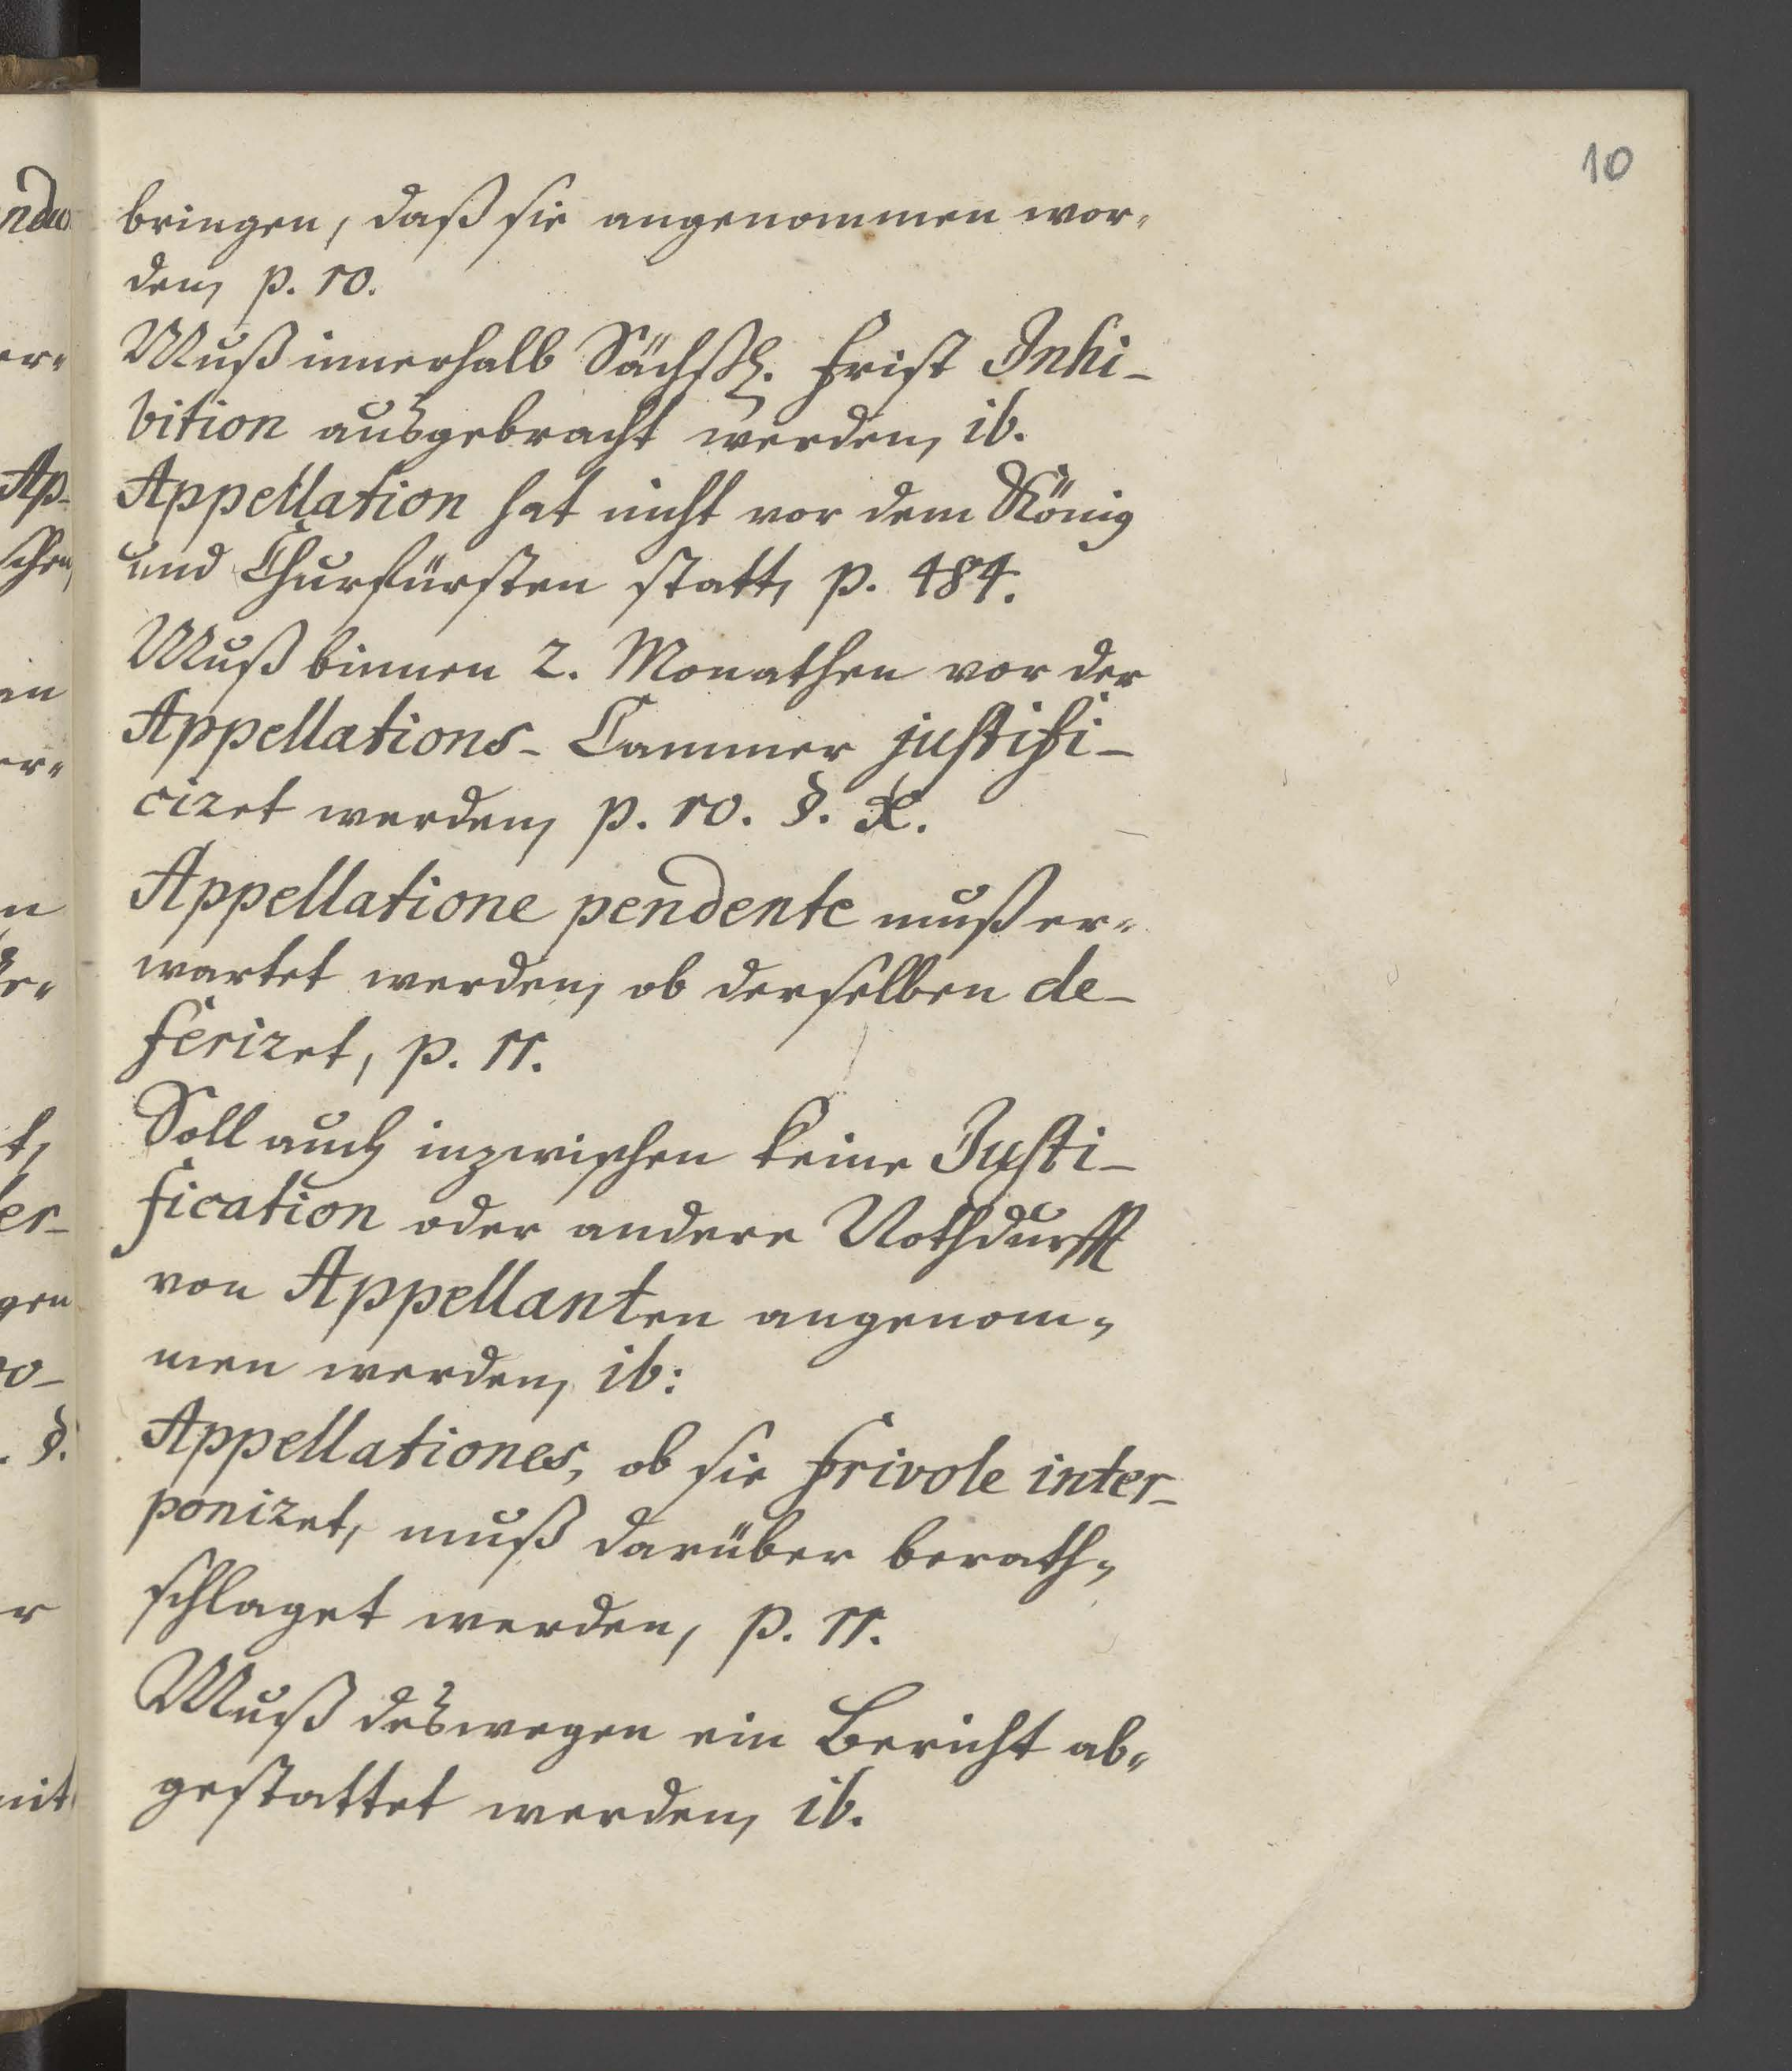 10
bringen, daß sie angenommen wor-
den, p. 10.
Muß innerhalb Sächßl. Frist Inhi-
bition ausgebracht werden, ib.
Appellation hat nicht vor dem König
und Churfürsten statt, p. 484.
Muß binnen 2. Monathen vor der
Appellations-Cammer justifi-
ciret werden, p. 10. §. X.
Appellatione pendente muß er-
wartet werden, ob derselben de-
feriret, p. 11.
Soll auch inzwischen keine Justi-
fication oder andere Nothdurfft
von Appellanten angenom-
men werden, ib:
Appellationes, ob sie frivole inter-
poniret, muß darüber berath-
schlaget werden, p. 11.
Muß deswegen ein Bericht ab-
gestattet werden, ib.